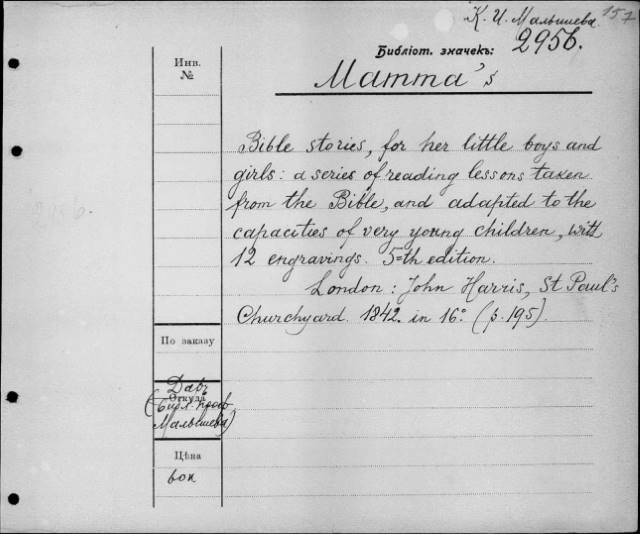 К. И. Малышева. 157
Библіот. значекъ: 295б.
Инв.
№
Mamma's
Bible stories, for her little boys and
girls: a series of reading lessons taken
from the Bible, and adapted to the
capacities of very young children, with
12 engravings. 5-th edition.
London: John Harris, St Paul's
Churchyard. 1842. in 16° (p. 195).
По заказу
Откуда
Малышева)
Цѣна
295б.